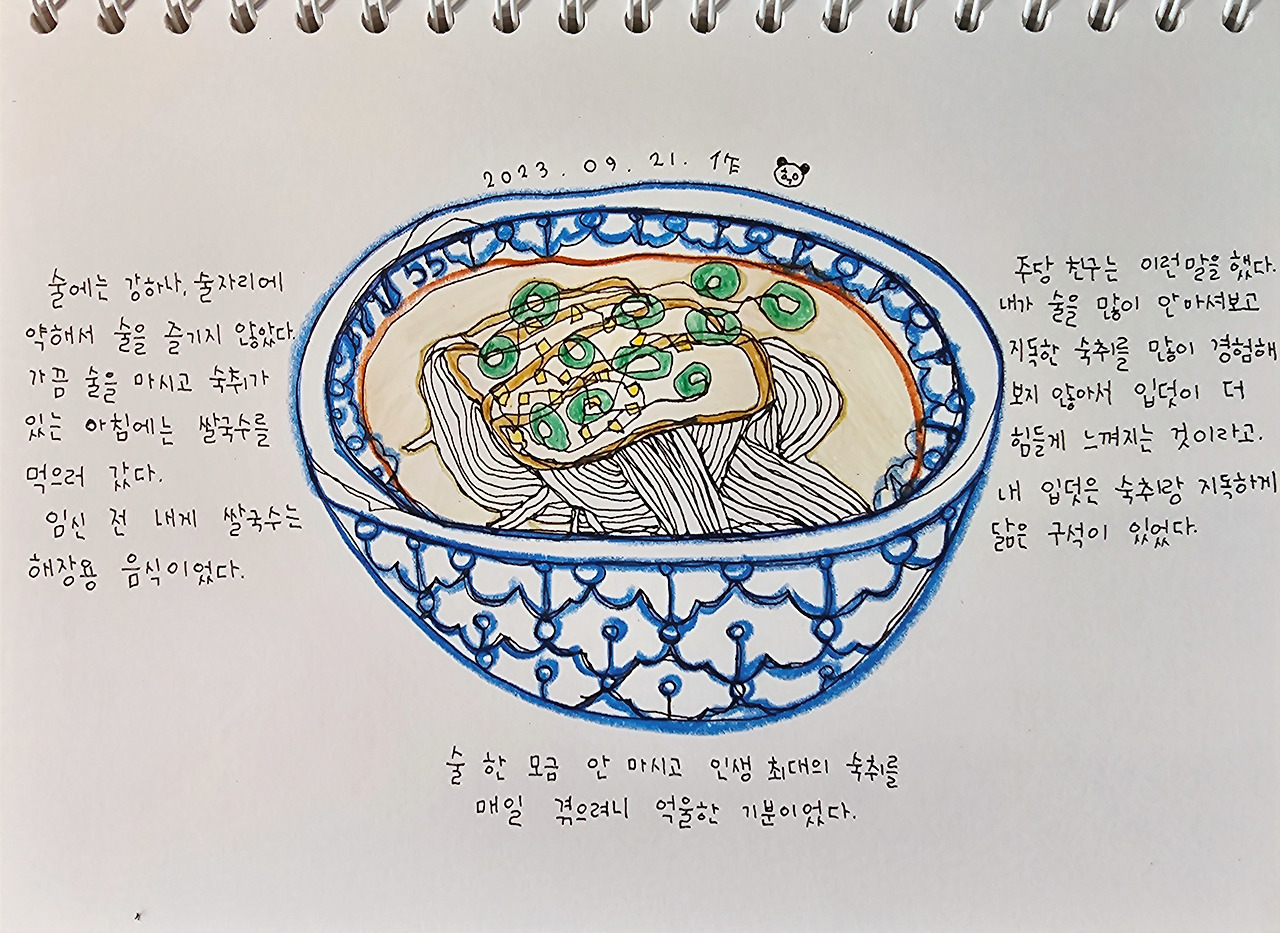 2023. 09. 21. 作
술에는 강하나, 술자리에
약해서 술을 즐기지 않았다.
가끔 술을 마시고 숙취가
있는 아침에는 쌀국수를
먹으러 갔다.
임신 전 내게 쌀국수는
해장용 음식이었다.
주당 친구는 이런 말을 했다.
내가 술을 많이 안 마셔보고
지독한 숙취를 많이 경험해
보지 않아서 입덧이 더
힘들게 느껴지는 것이라고.
내 입덧은 숙취랑 지독하게
닮은 구석이 있었다.
술 한 모금 안 마시고 인생 최대의 숙취를
매일 겪으려니 억울한 기분이었다.